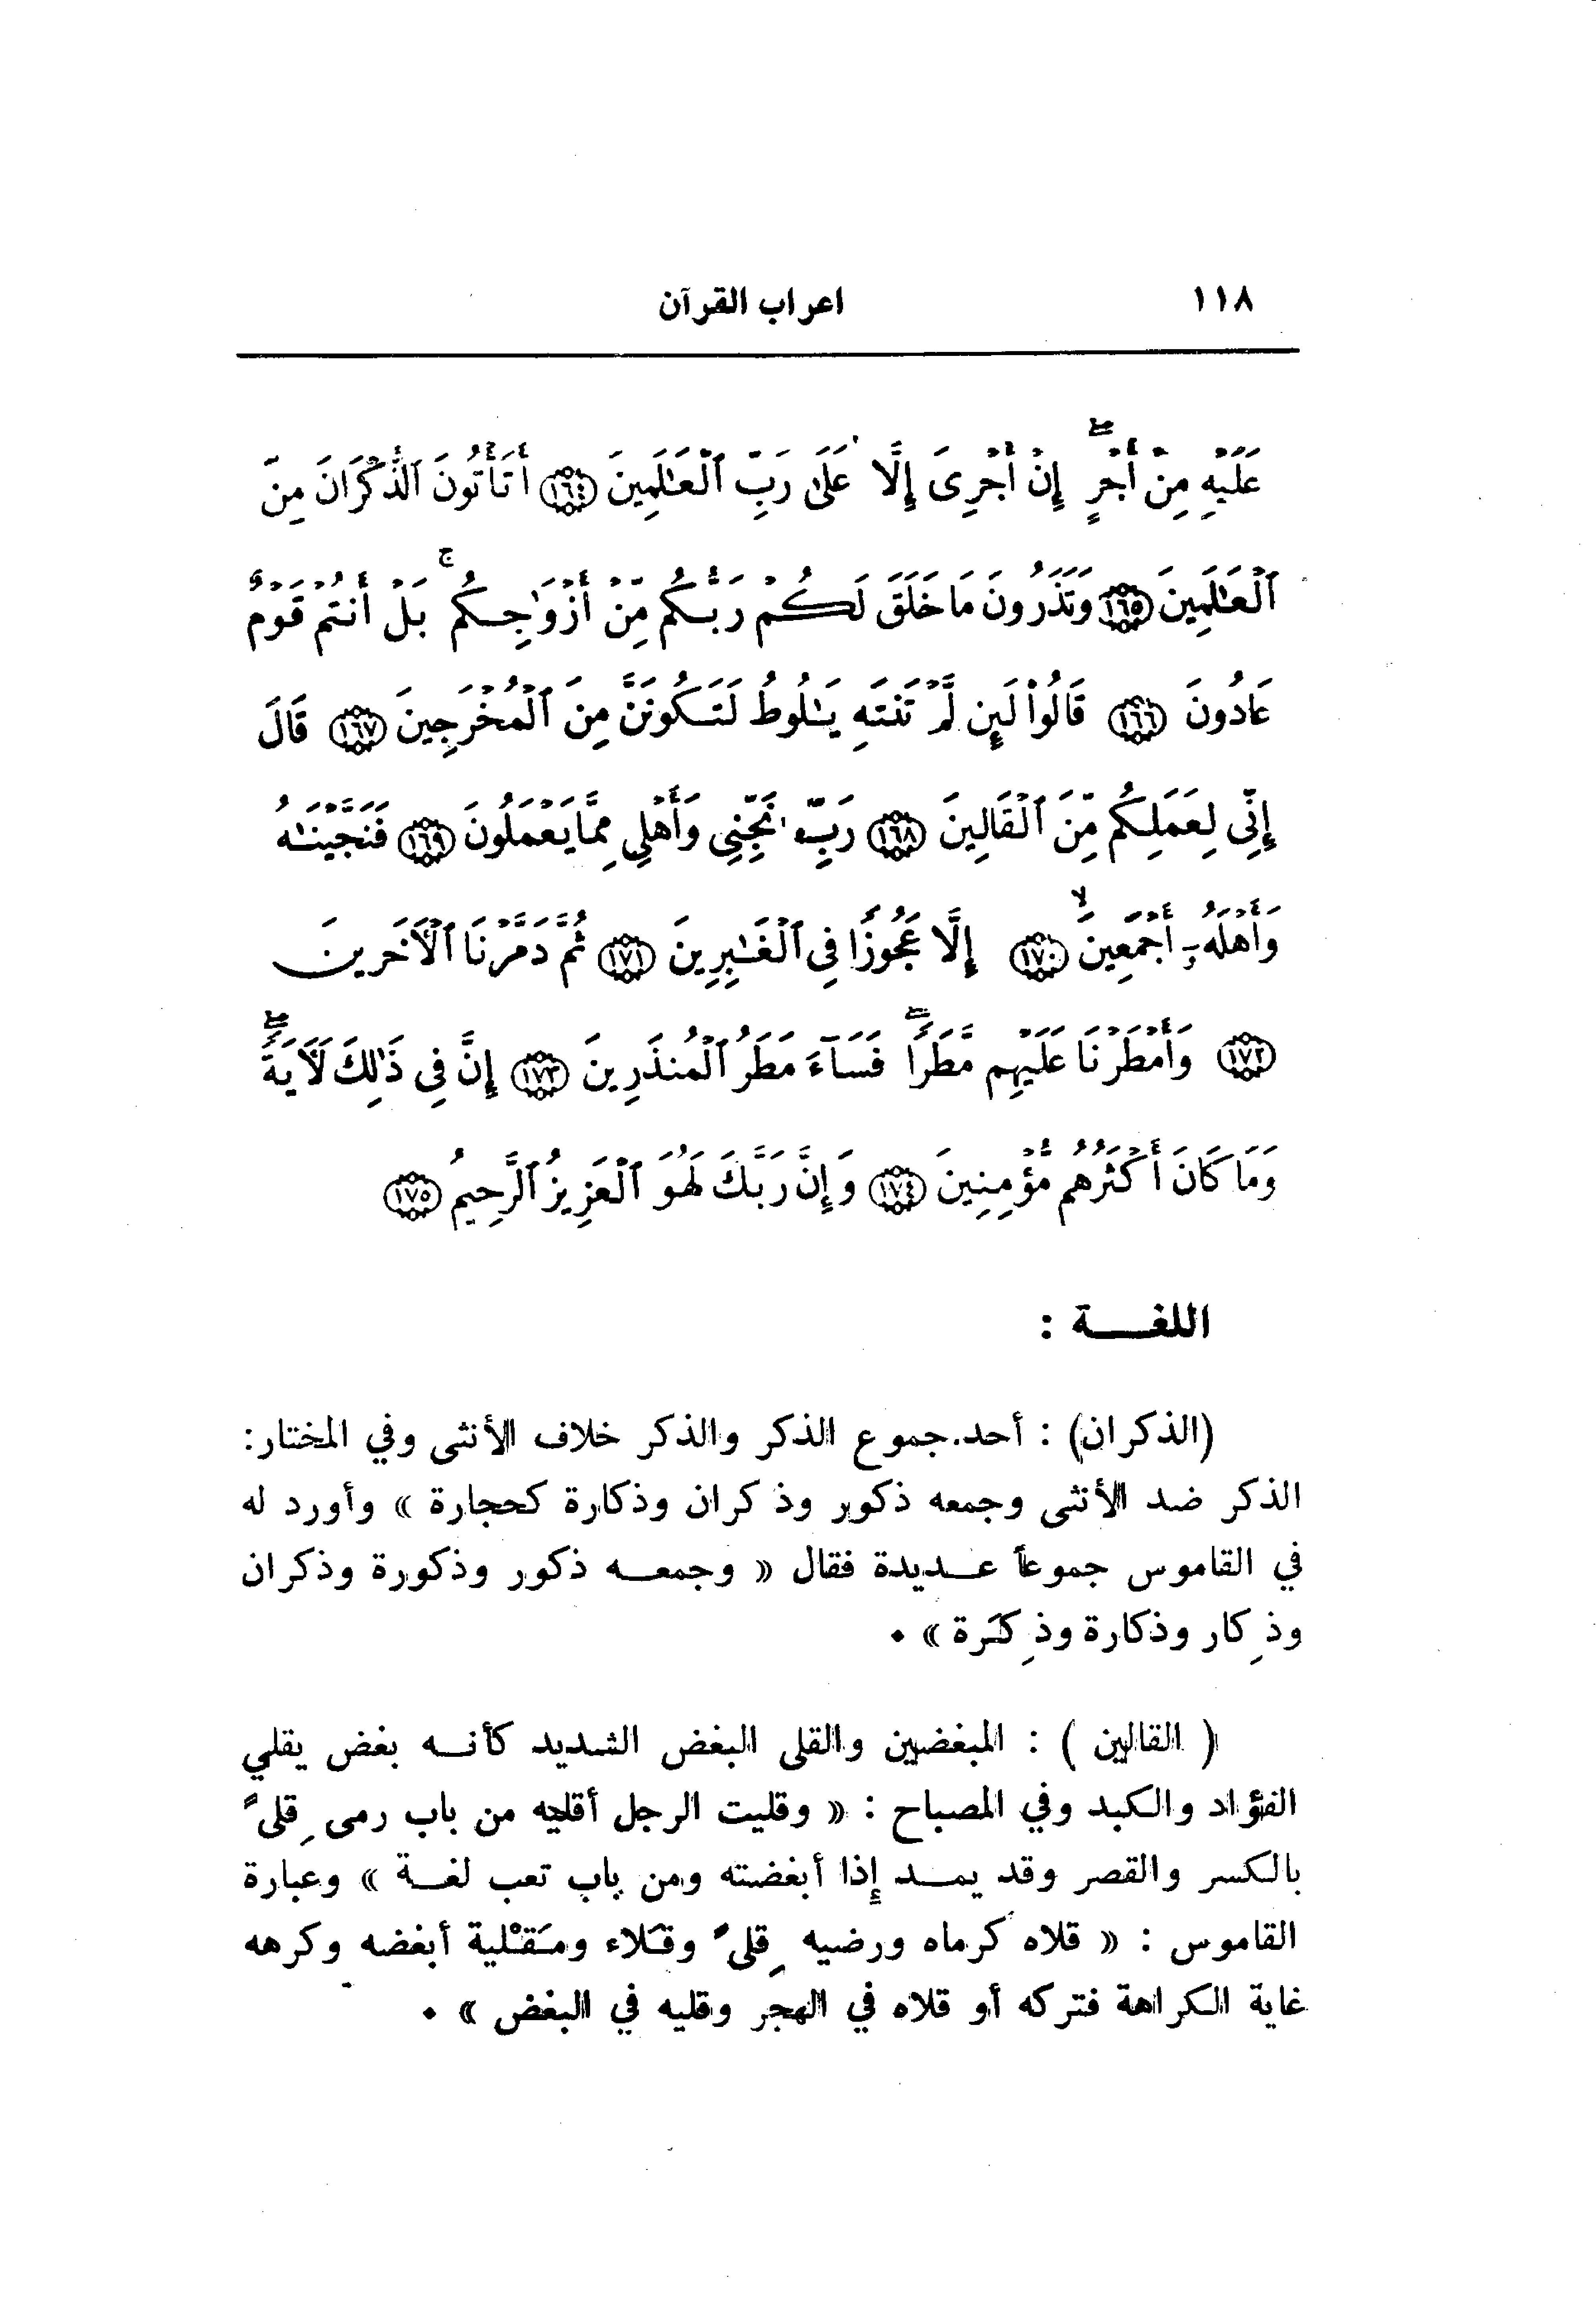 ١١٨ اعراب القرآن
عَلَيْهِ مِنْ أَجْرٍ إِنْ أَجْرِىَ إِلَّا عَلَىٰ رَبِّ ٱلْعَـٰلَمِينَ ١٦٤ أَتَأْتُونَ ٱلذُّكْرَانَ مِنَ
ٱلْعَـٰلَمِينَ ١٦٥ وَتَذَرُونَ مَا خَلَقَ لَكُمْ رَبُّكُم مِّنْ أَزْوَٰجِكُم بَلْ أَنتُمْ قَوْمٌ
عَادُونَ ١٦٦ قَالُوا۟ لَئِن لَّمْ تَنتَهِ يَـٰلُوطُ لَتَكُونَنَّ مِنَ ٱلْمُخْرَجِينَ ١٦٧ قَالَ
إِنِّى لِعَمَلِكُم مِّنَ ٱلْقَالِينَ ١٦٨ رَبِّ نَجِّنِى وَأَهْلِى مِمَّا يَعْمَلُونَ ١٦٩ فَنَجَّيْنَـٰهُ
وَأَهْلَهُۥٓ أَجْمَعِينَ ١٧٠ إِلَّا عَجُوزًا فِى ٱلْغَـٰبِرِينَ ١٧١ ثُمَّ دَمَّرْنَا ٱلْـَٔاخَرِينَ
١٧٢ وَأَمْطَرْنَا عَلَيْهِم مَّطَرًا فَسَآءَ مَطَرُ ٱلْمُنذَرِينَ ١٧٣ إِنَّ فِى ذَٰلِكَ لَـَٔايَةً
وَمَا كَانَ أَكْثَرُهُم مُّؤْمِنِينَ ١٧٤ وَإِنَّ رَبَّكَ لَهُوَ ٱلْعَزِيزُ ٱلرَّحِيمُ ١٧٥
اللغـــة :
(الذكران) : أحد جموع الذكر والذكر خلاف الأنثى وفي المختار:
الذكر ضد الأنثى وجمعه ذكور وذكران وذكارة كحجارة » وأورد له
في القاموس جموعاً عــديدة فقال « وجمعــه ذكور وذكورة وذكران
وذِكار وذكارة وذِكَرة » .
( القالين ) : المبغضين والقلى البغض الشديد كأنــه بغض يقلي
الفؤاد والكبد وفي المصباح : « وقليت الرجل أقليه من باب رمى قِلىً
بالكسر والقصر وقد يمــد إذا أبغضته ومن باب تعب لغــة » وعبارة
القاموس : « قلاه كرماه ورضيه قِلىً وقَلاء ومَقْلية أبغضه وكرهه
غاية الكراهة فتركه أو قلاه في الهجر وقليه في البغض » .